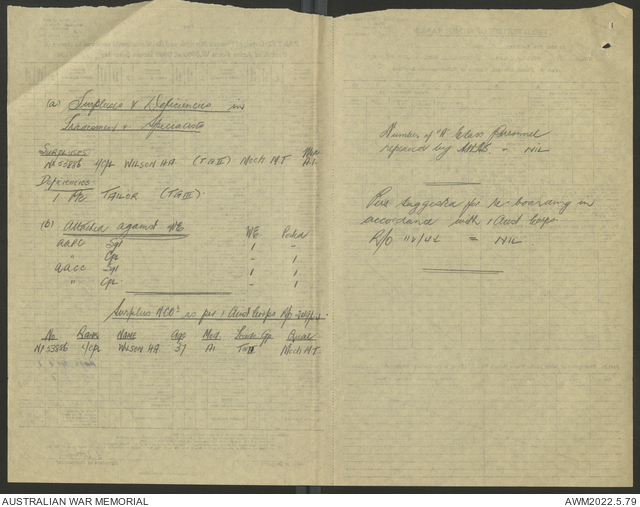 (a) Surpluses & Deficiencies in
Tradesmen & Specialists
Surpluses
L/Cpl WILSON H.A (TG II) Mech M.T
A1.
Deficiencies
1 Pte TAILOR (TG III)
(b) Attached against WE WE Posted
AAPC Sgt 1 -
" Cpl - 1
AACC Sgt 1 1
" Cpl - 1
Surplus NCOs as per 1 Aust Corps R/O
No. Rank Name Age Med. Trade Gp. Qual
L/Cpl WILSON HA 37 A1 TGII Mech M.T
Number of "B" Class Personnel
required by = NIL
Pers suggested for re-boarding in
accordance with 1 Aust Corps
R/O = NIL
AUSTRALIAN WAR MEMORIAL
AWM2022.5.79